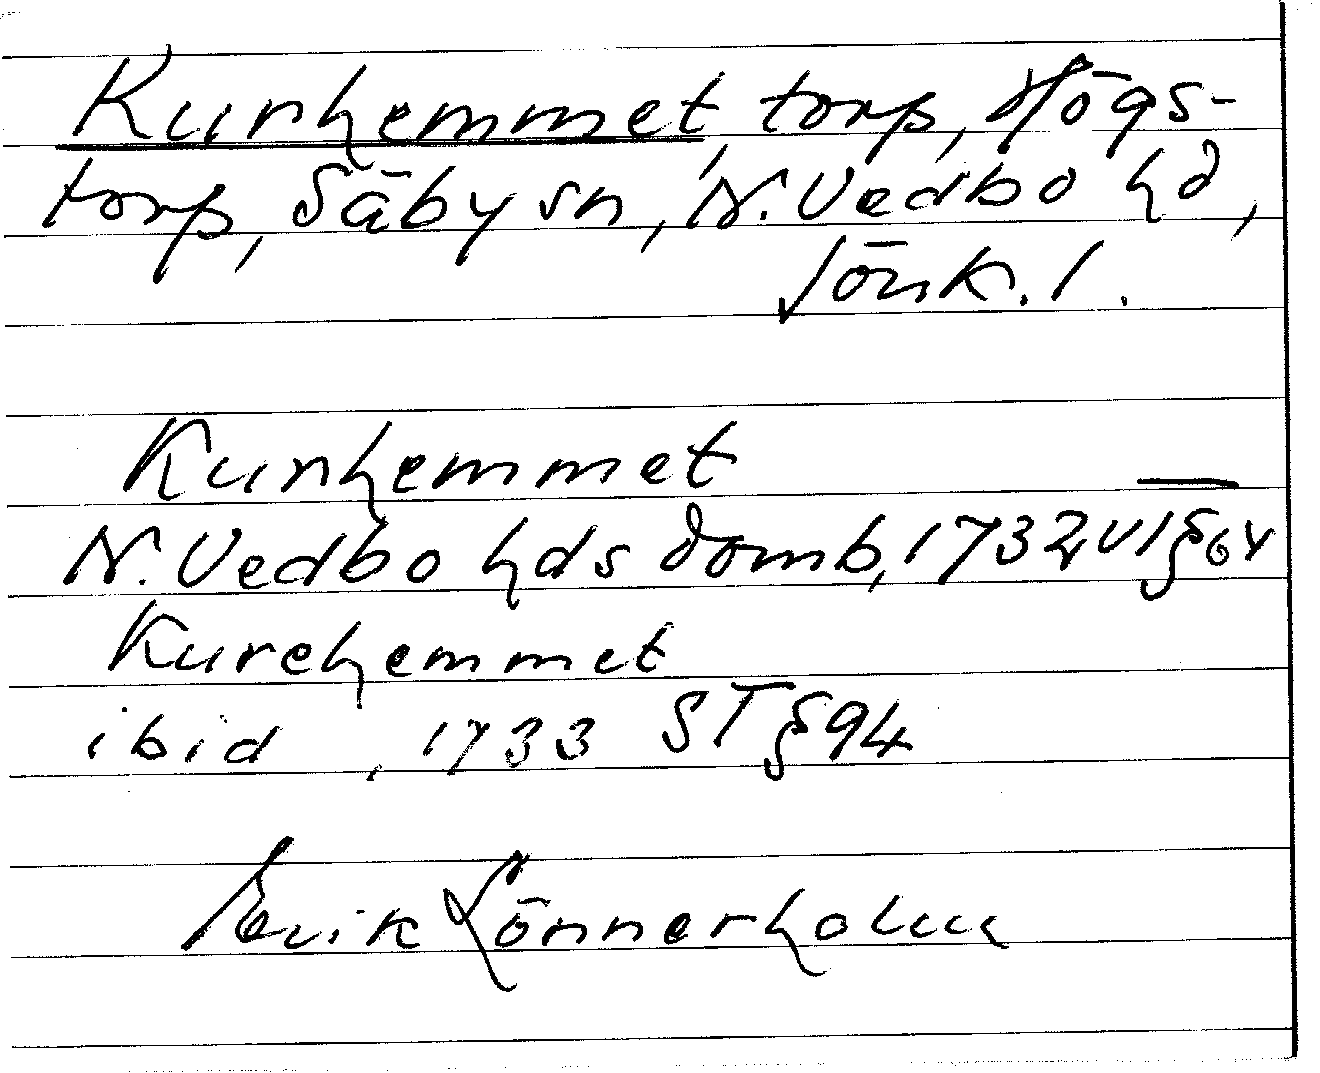 Kurhemmet, torp, Högs-
torp, Säby sn, N. Vedbo hd,
Jönk. l.
Kurhemmet
N. Vedbo hds domb, 1732 VT § 64
Kurehemmet
ibid, 1733 ST § 94
Erik Lönnerholm